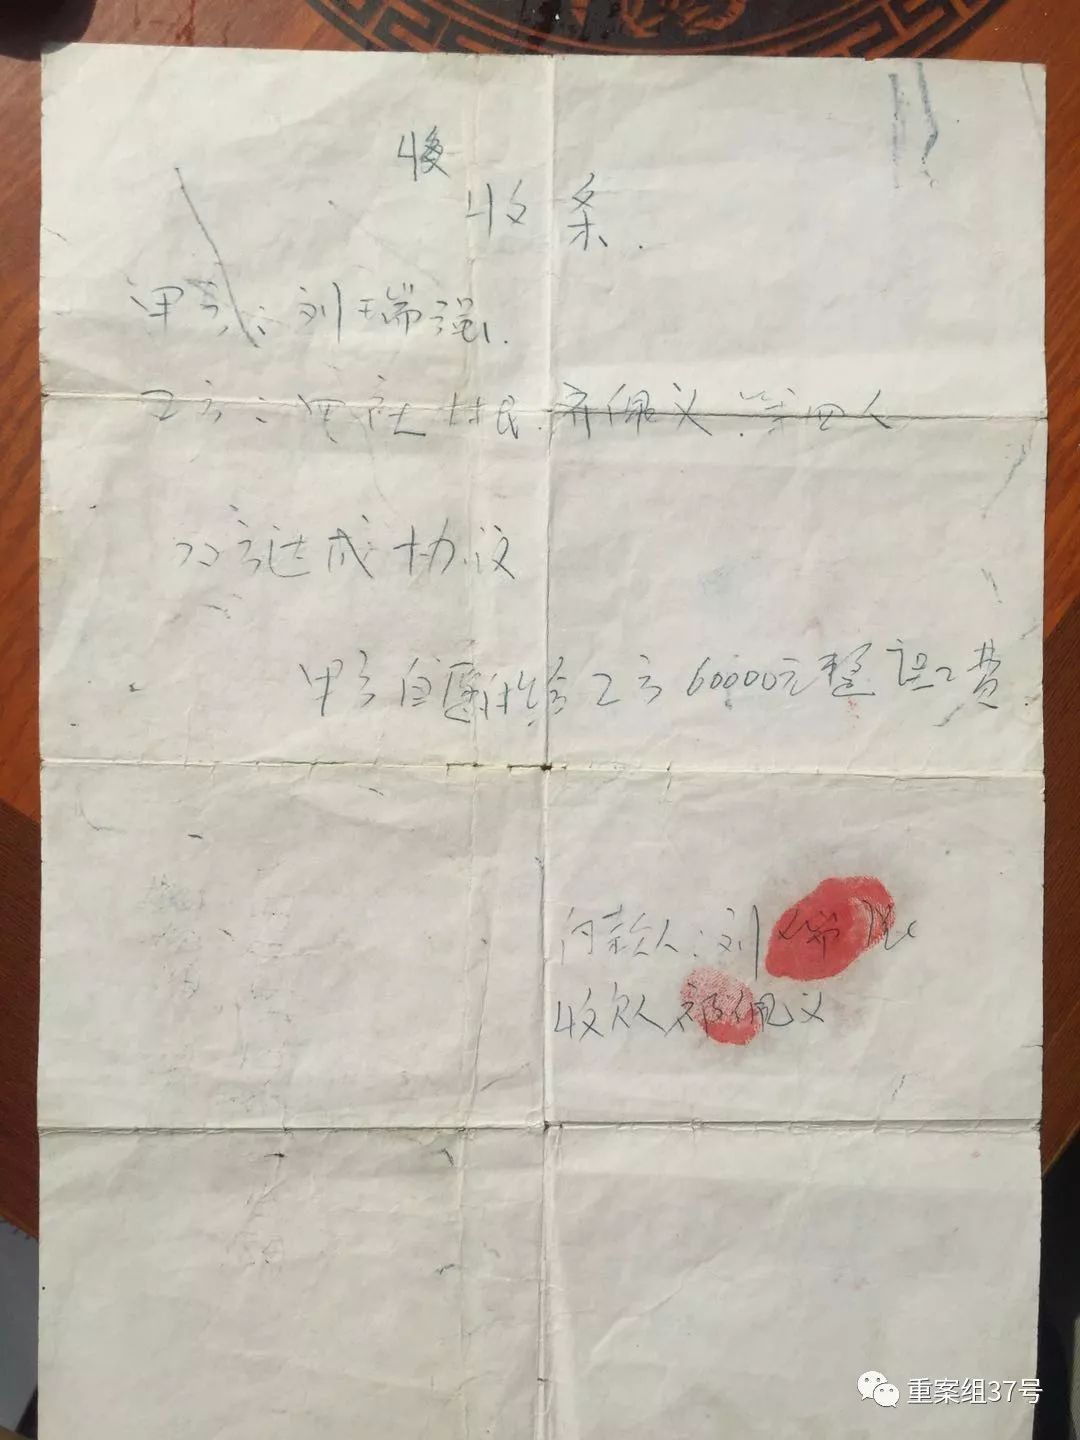 收
收条.
甲方:刘瑞强.
乙方:四社村民.齐佩义.等四人
双方达成协议
甲方自愿付给乙方60000元整误工费.
付款人:刘瑞强
收欠人 祁佩义
重案组37号